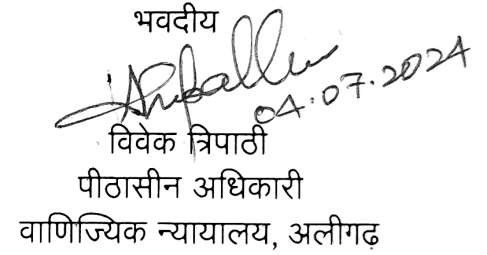 भवदीय
04.07.2024
विवेक त्रिपाठी
पीठासीन अधिकारी
वाणिज्यिक न्यायालय, अलीगढ़